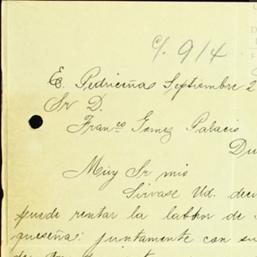 c/. 914
E. Pedriceñas Septiembre 2
Sr D.
Fran.co Gomez Palacio
Du
Muy Sr mio
Sirvase Ud. deci
puede rentar la labor de
queseña: juntamente con su